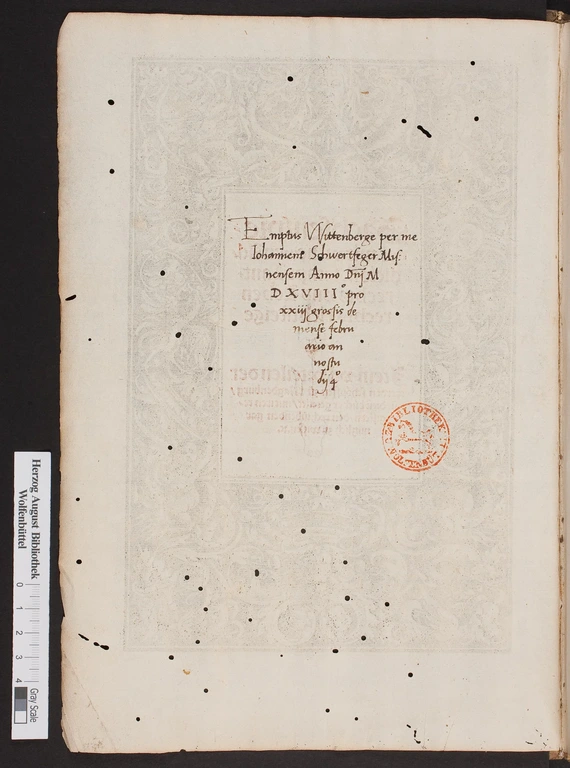 Emptus VVittenberge per me
Iohannem Schwertfeger Mis:
nensem Anno Dnj M
D XVIII° pro
xxiij grossis de
mense febru
ario an
no stu
dij 4°
BIBLIOTHEK
Herzog August Bibliothek
Wolfenbüttel
0 1 2 3 4
Gray Scale